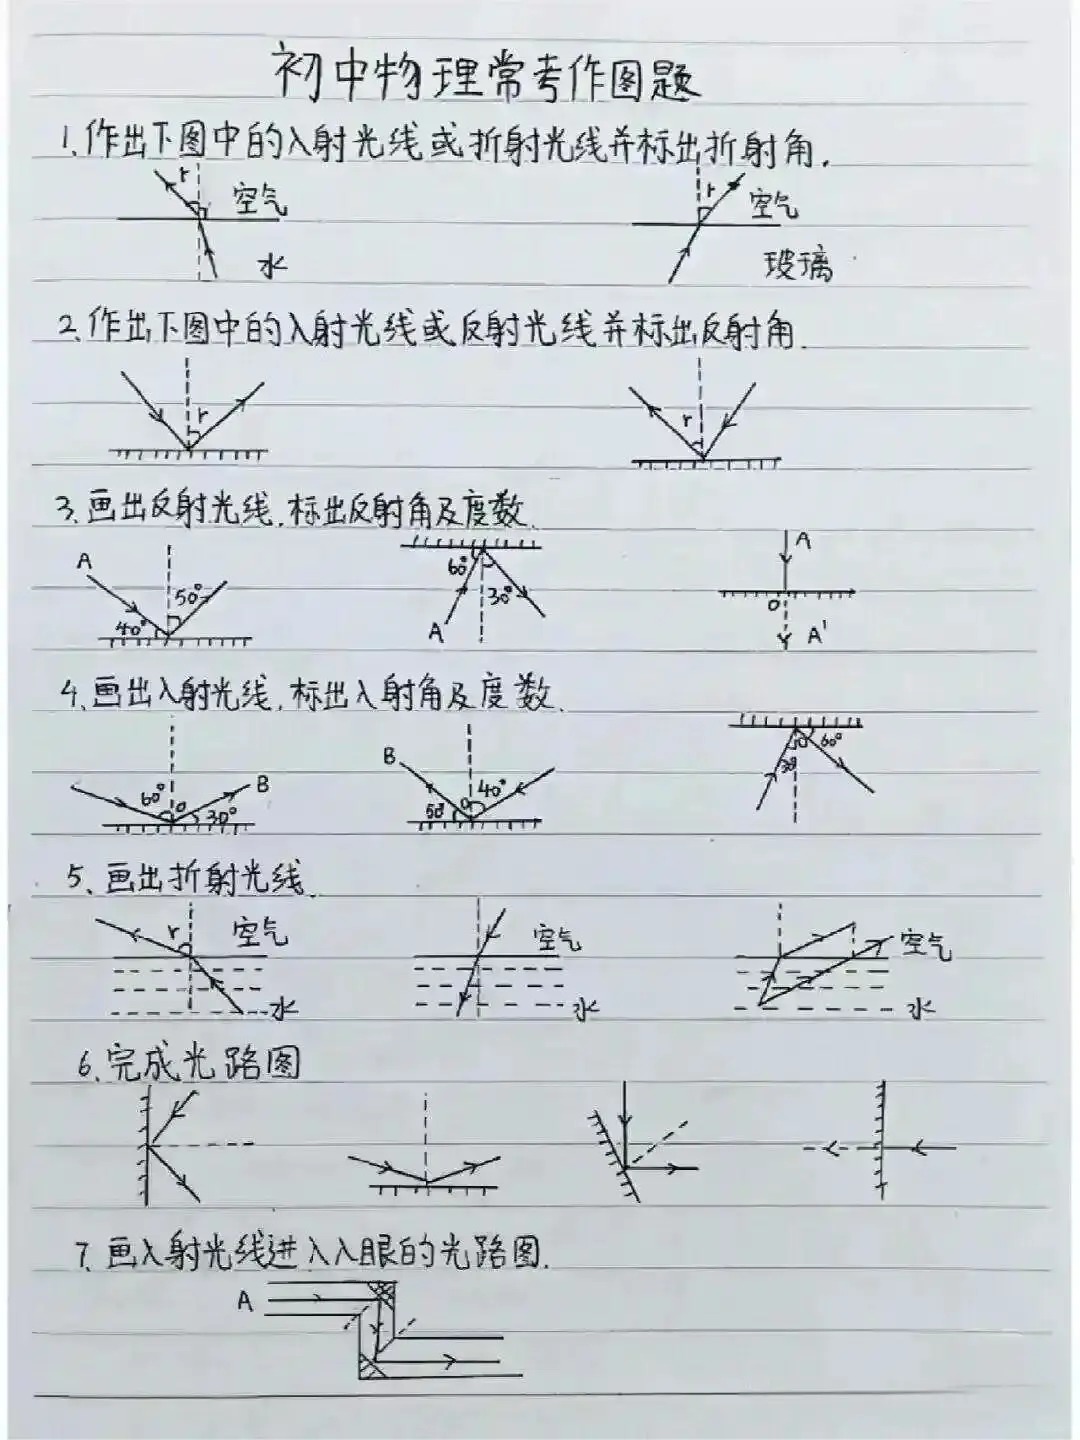 初中物理常考作图题
1.作出下图中的入射光线或折射光线并标出折射角.
r 空气 r 空气
水 玻璃
2.作出下图中的入射光线或反射光线并标出反射角.
r r
3.画出反射光线.标出反射角及度数.
A 50° 40° 60° 30° A A O A'
4.画出入射光线.标出入射角及度数.
60° O B 30° B 50° O 40° 30° O 60°
5、画出折射光线.
r 空气 空气 空气
水 水 水
6.完成光路图
7.画入射光线进入入眼的光路图.
A